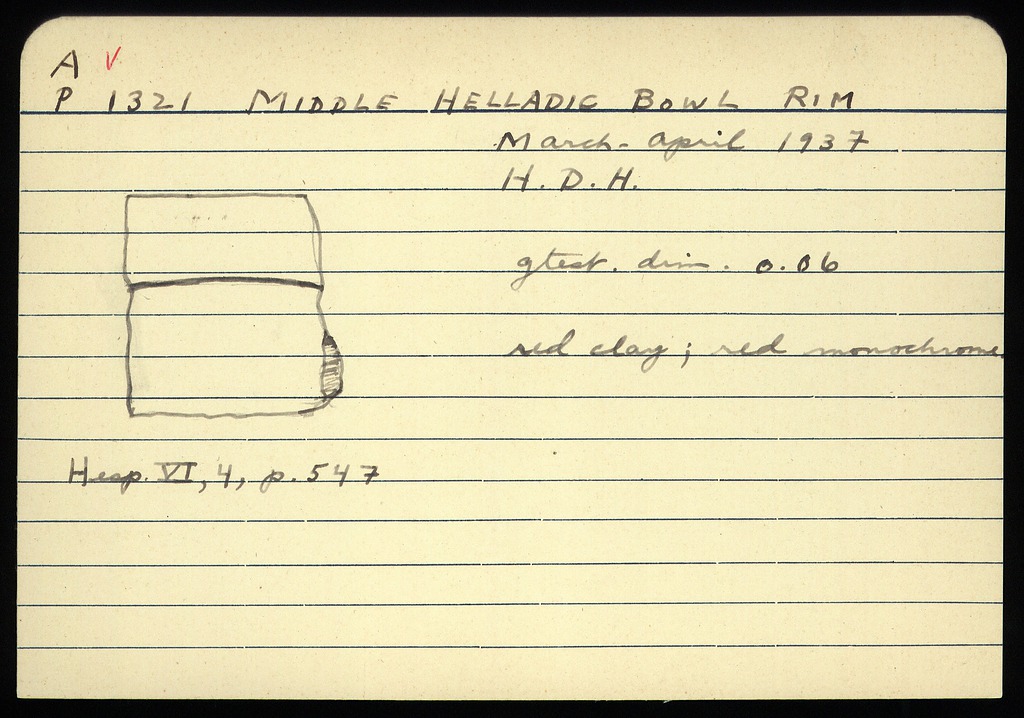 A V
P 1321 MIDDLE HELLADIC BOWL RIM
March-April 1937
H. D. H.
gtest. dim. 0.06
red clay; red monochrome
Hesp. VI, 4, p. 547